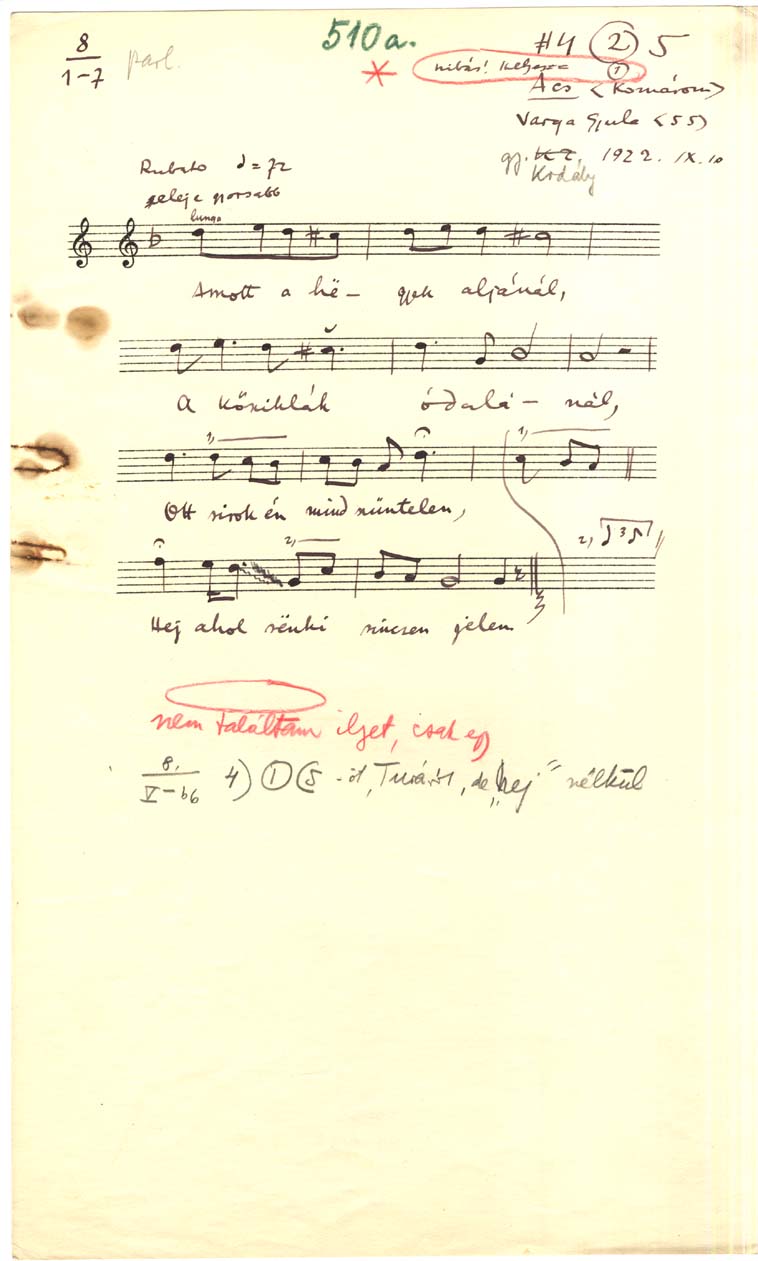 8
1-7 parl.
510a.
#4 (2) 5
hibás! helyesen (1)
Ács (Komárom)
Varga Gyula (55)
gy. Kodály 1922. IX. 10
Rubato = 72
eleje gyorsabb
lunga
Amott a hë- gyek aljánál,
A kősziklák ódalá- nál,
1, 1,
Ott sirok én mind szüntelen,
2, 2, 3
Hej ahol sënki sincsen jelen.
nem találtam ilyet, csak egy
8.
V-b6 4) (1) (5 -öt, Turáról, de „hej" nélkül